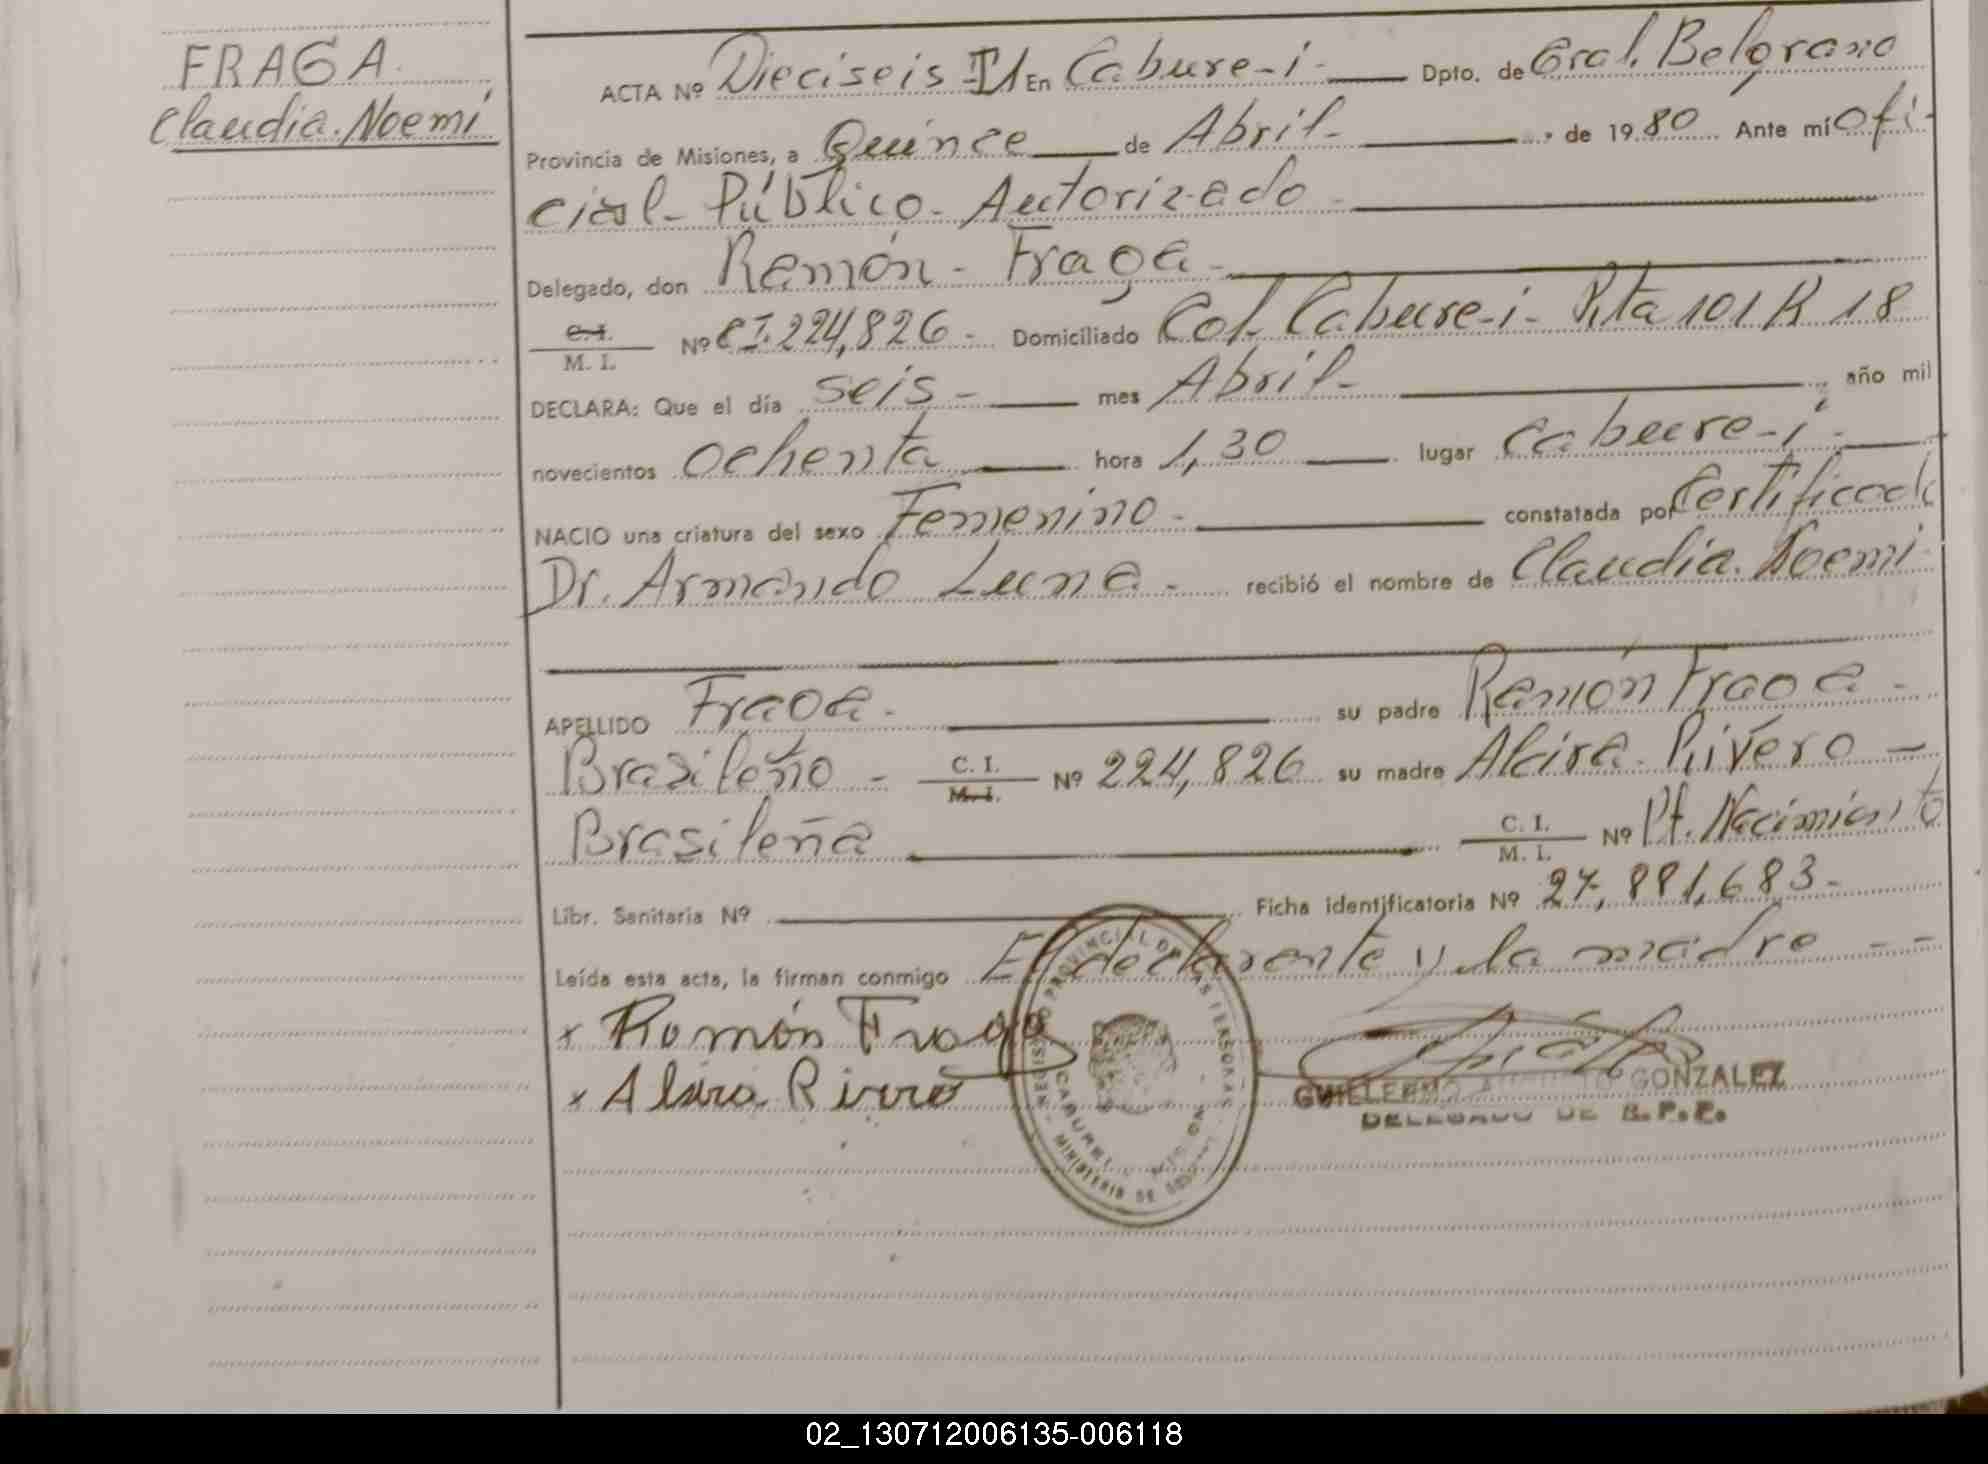 FRAGA.
Claudia. Noemí
ACTA Nº Dieciseis TI En Cabure-i- Dpto. de Gral. Belgrano
Provincia de Misiones, a Quince de Abril- de 1980 Ante mí Ofi-
cial- Público- Autorizado-
Delegado, don Ramón- Fraga-
C. I. Nº CI. 224,826- Domiciliado Col- Cabure-i- Rta 101 K 18
M. I.
DECLARA: Que el día seis- mes Abril- año mil
novecientos Ochenta hora 1,30 lugar Cabure-i-
NACIO una criatura del sexo Femenino- constatada por Certificado
Dr. Armando Luna- recibió el nombre de Claudia. Noemi
APELLIDO Fraga- su padre Ramón Fraga-
Brasileño- C. I. Nº 224,826 su madre Alcira- Rivero-
M. I.
Brasileña C. I. Nº Pt. Nacimiento
M. I.
Libr. Sanitaria Nº Ficha identificatoria Nº 27,881,683-
Leída esta acta, la firman conmigo El declarante y la madre - -
x Ramón Fraga
x Alsira Rivero
REGISTRO PROVINCIAL DE LAS PERSONAS
CABUREI MISIONES
MINISTERIO DE
GUILLERMO AUGUSTO GONZALEZ
DELEGADO DE R.P.P.
02_130712006135-006118